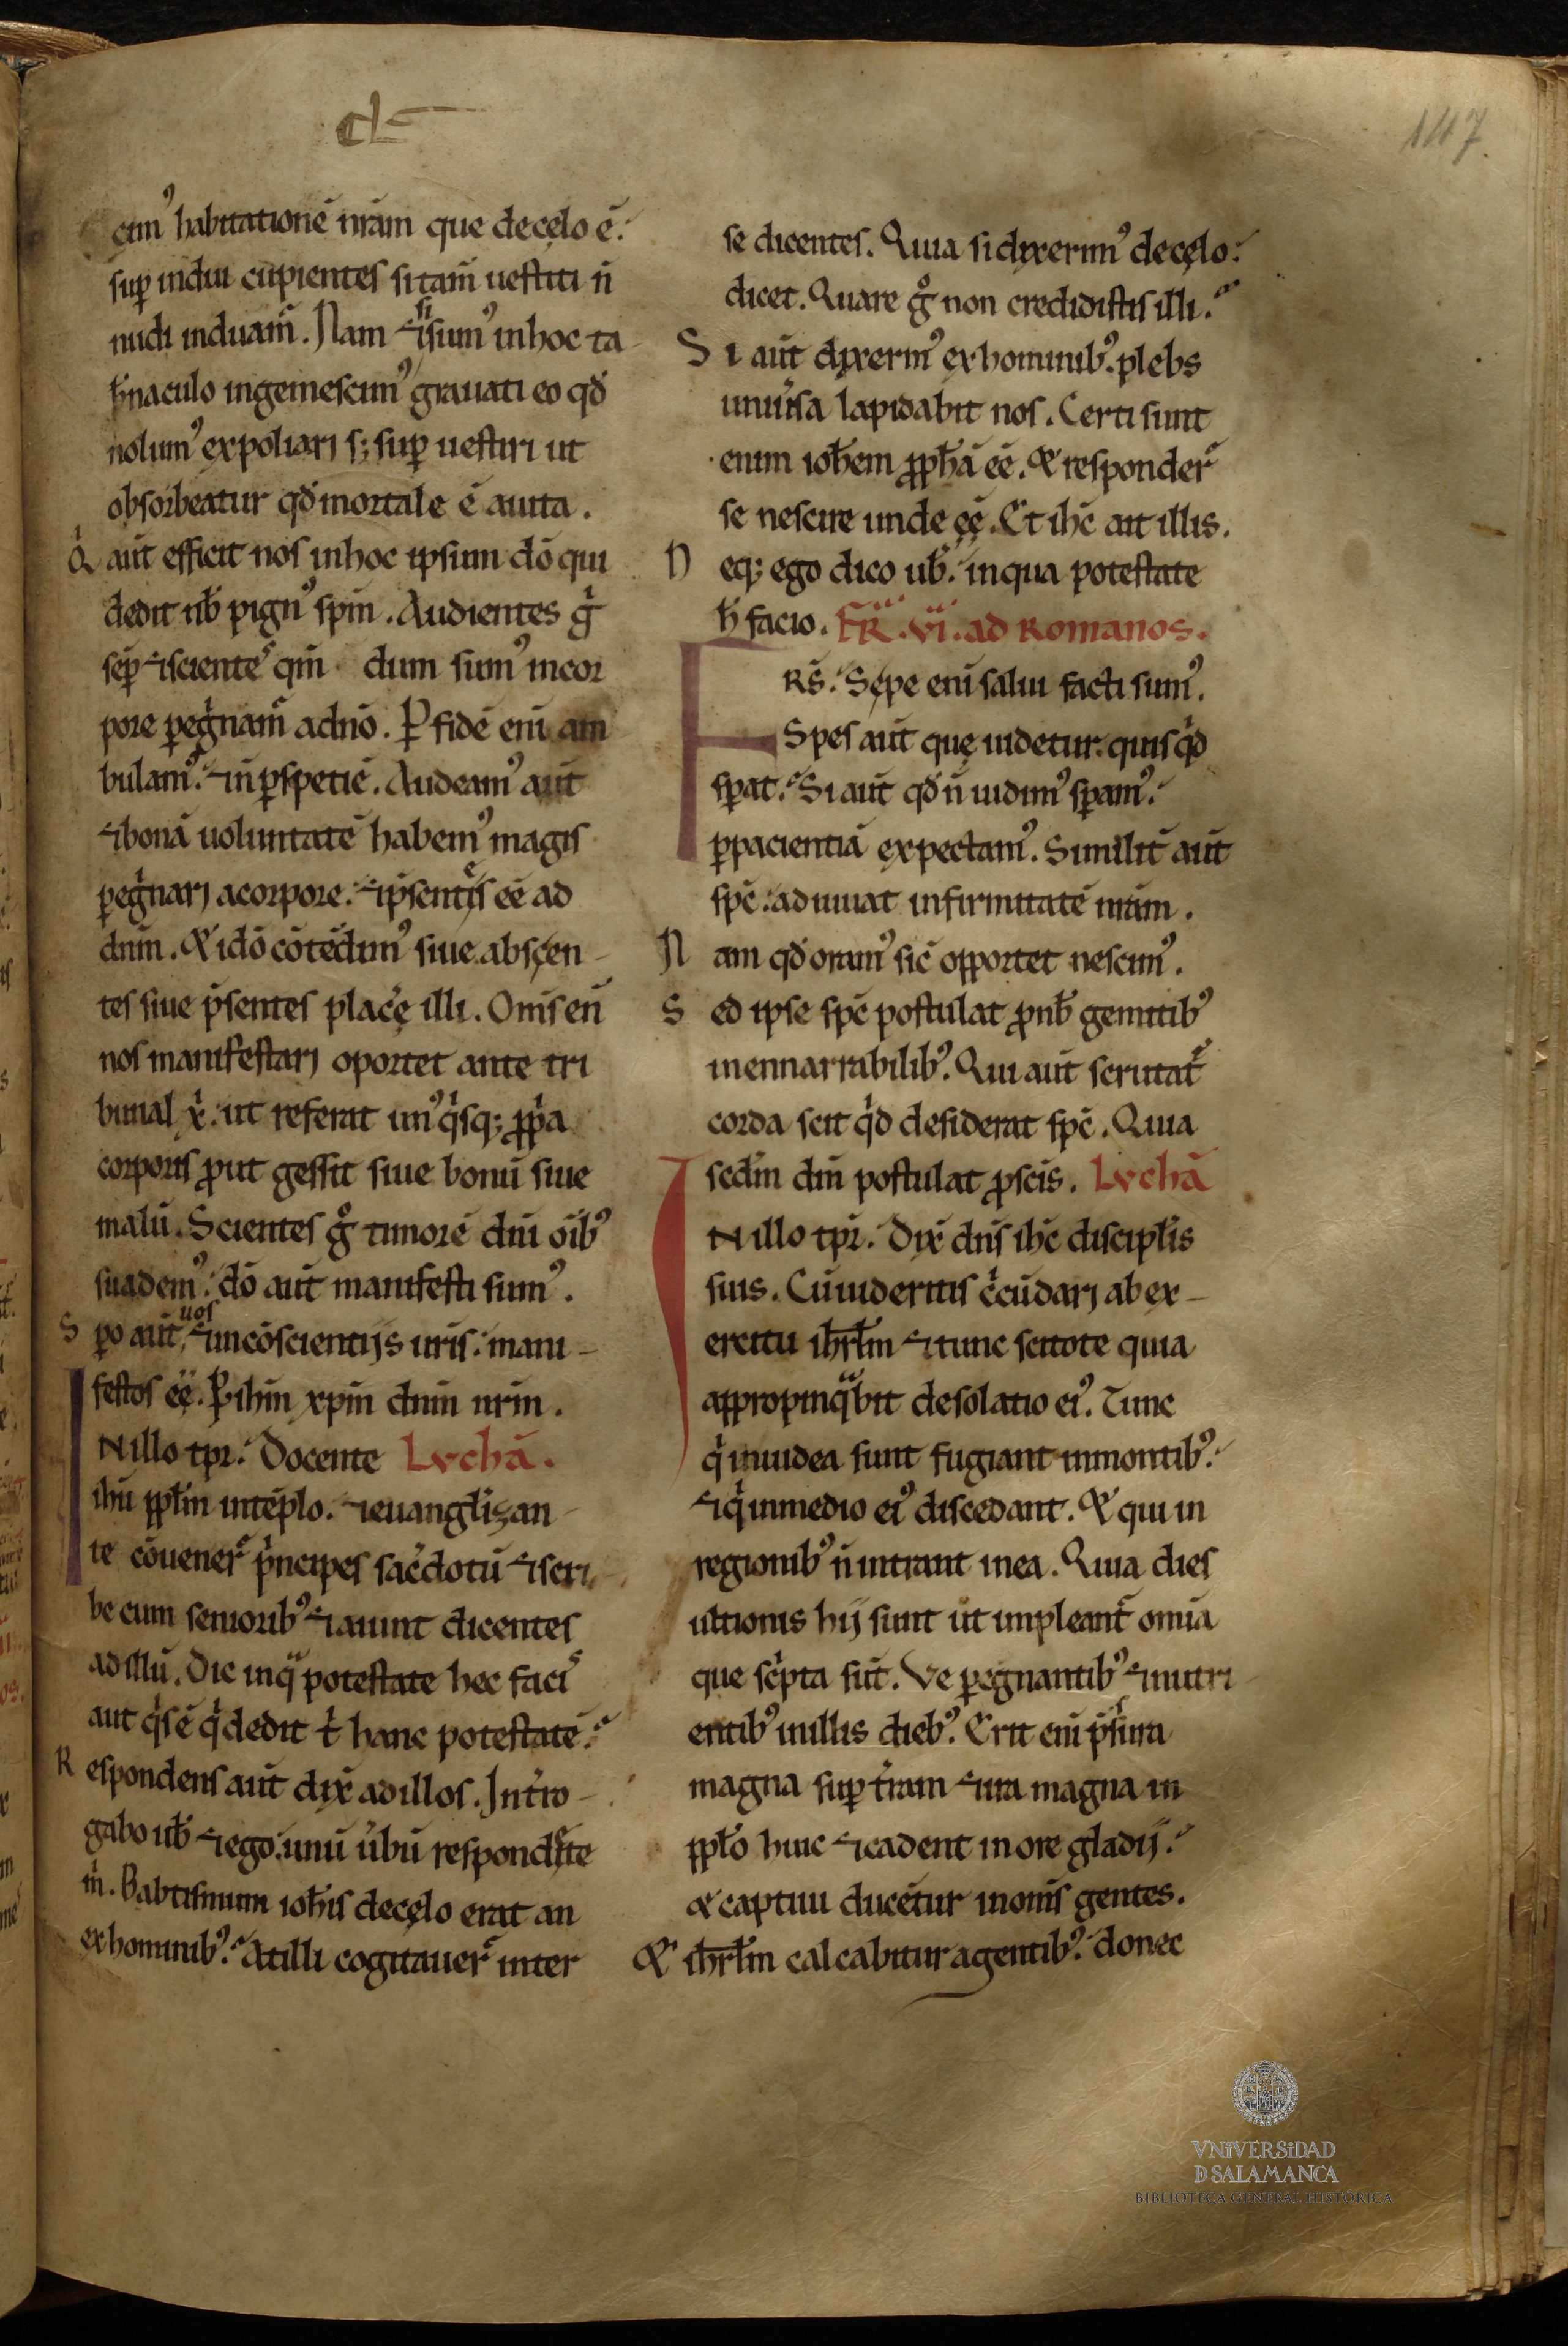 cl
147
cim᾽ habitationē nr̄am que decęlo ē.
suꝑ indui cupientes si tam̄ uestiti n̄
nudi induam̃. Nam ⁊si sum᾽ inhoc ta
b̄naculo ingemescim᾽ grauati eo qd̕
nolum᾽ expoliari s; suꝑ uestiri ut
obsorbeatur qd̕ mortale ē auita.
Q̇ aut̄ efficit nos inhoc ipsum dō qui
dedit nb̄ pign᾽ spm̄. Audientes g̊
seꝑ ⁊sciente᷒ qm̄ dum sum᾽ incor
pore ꝑeg̊nam̃ adnō. P fidē eni am
bulam᾽. ⁊n̄ ꝑspetiē. Audeam᾽ aut̄
⁊bonā uoluntatē habem᾽ magis
ꝑeg̊nari acorpore. ⁊ p̄sentes eē ad
dnm̄. & idō cōtēdim᾽ siue abscen-
tes siue p̄sentes placē illi. Om̄s en̄
nos manifestari oportet ante tri
bunal xp̄i. ut referat un᾽ q̊sq; ꝓp̊a
corporis ꝓut gessit siue bonū siue
malū. Scientes g̊ timorē dnī oīb᾽
suadem᾽. dō aut̄ manifesti sum᾽.
Spo aut̄ uos ⁊ incōscientijs uris. mani-
festos eē. P ihm xpm dnm nrm.
INillo tpr. Docente Lvchā.
ihū ppl̄m intēplo. ⁊euangl̄izan
te cōuener̃ p̊ncipes sac̄dotū ⁊scri
be cum seniorib᾽ ⁊aiunt dicentes
ad illū. Dic inq̊ potestate hec faci᷒
aut q̊s ē q̊ dedit t̊ hanc potestatē.
Respondens aut̄ dix̄ ad illos. Intro-
gabo ub̄ ⁊ego unū ūbū respondete
m̊. Babtismum ioh̄is decęlo erat an
exhominib᾽. Atilli cogitauer̃ inter
se dicentes. Quia si dixerim᾽ decęlo.
dicet. Quare g̊ non credidistis illi.
Si aut̄ dixerm᾽ exhominib᾽. plebs
uniūsa lapidabit nos. Certi sunt
enim ioh̄em ꝓph̄ā eē. & responder̃
se nescire unde eę̄. Et ihc̄ ait illis.
Neq; ego dico ub̄. inqua potestate
h̄ facio. FR̄. vi. ad Romanos.
FRS̄. Sępe eni salui facti sum᾽.
Spes aut̄ quę uidetur. quis q̊d
sꝑat. Si aut̄ qd̕ n̄ uidim᾽ sꝑam᾽.
ꝑpacientiā expectam᾽. Similit̄ aut̄
spc̄. adiuuat infirmitatē nrām.
Nam qd̕ oram᾽ sic̄ opportet nescim᾽.
Sed ipse spc̄ postulat ꝓnb̄ gemitib᾽
inennarrabilib᾽. Qui aut̄ scrutat̃
corda scit q̊d desiderat spc̄. Quia
scdm̄ dm̄ postulat ꝓscis̄. Lvchā
INillo tpr. Dix̄ dns̄ ihc̄ discipl̄is
suis. Cū uideritis c̊cūdari ab ex-
ercitu ihrl̄m ⁊tunc scitote quia
appropinq̊bit desolatio ei᾽. Tunc
q̊ iniudea sunt fugiant inmontib᾽.
⁊q̊ inmedio ei᾽ discedant. & qui in
regionib᾽ n̄ intrant inea. Quia dies
ultionis hij sunt ut impleant̃ omīa
que sc̊pta sūt. Ve p̄egnantib᾽ ⁊nutri
entib᾽ inillis dieb᾽. Erit eni p̄sura
magna suꝑ t̄ram ⁊ira magna in
ppl̄o huic ⁊cadent in ore gladij.
& captiui ducētur inom̄s gentes.
& ihrl̄m calcabitur agentib᾽. donec
VNIVERSIDAD
D SALAMANCA
BIBLIOTECA GENERAL HISTÓRICA